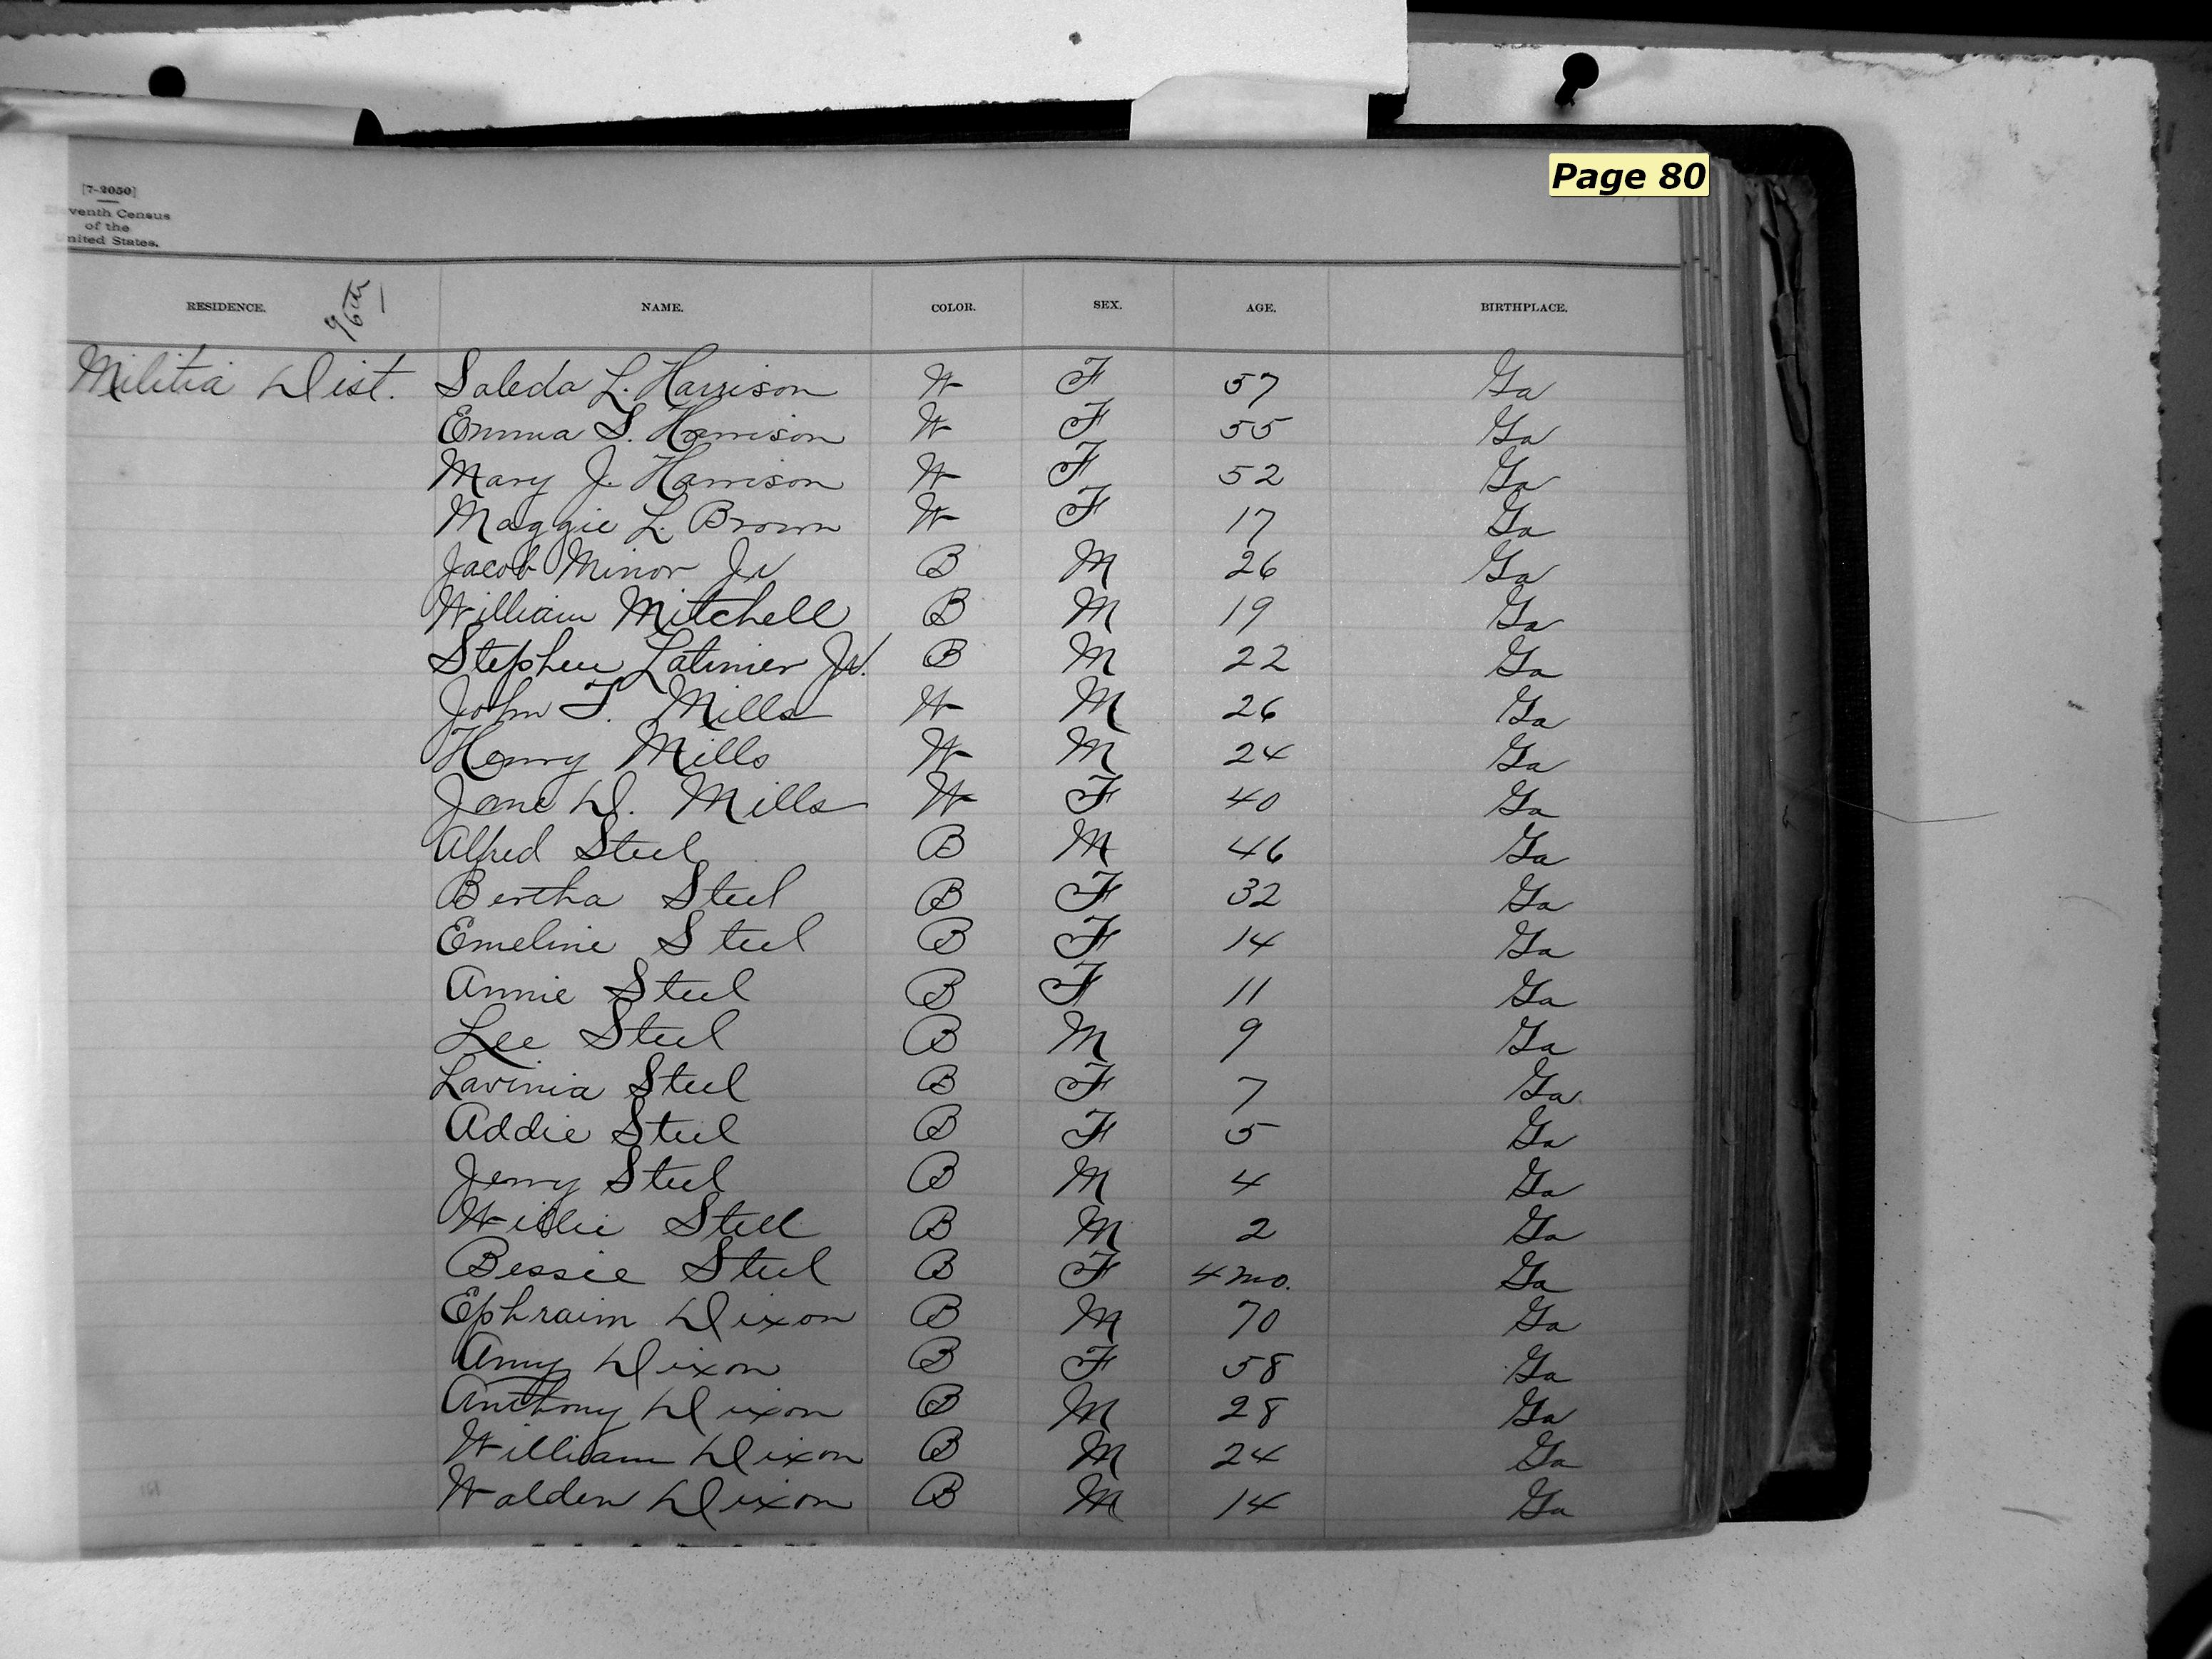 Page 80
[7-2050]
venth Census
of the
nited States.
RESIDENCE. 96th NAME. COLOR. SEX. AGE. BIRTHPLACE.
Militia Dist. Saleda L. Harrison W F 57 Ga
Emma S. Harrison W F 55 Ga
Mary J. Harrison W F 52 Ga
Maggie L. Brown W F 17 Ga
Jacob Minor Jr B M 26 Ga
William Mitchell B M 19 Ga
Stephen Latimer Jr. B M 22 Ga
John T. Mills W M 26 Ga
Henry Mills W M 24 Ga
Jane D. Mills W F 40 Ga
Alfred Steel B M 46 Ga
Bertha Steel B F 32 Ga
Emeline Steel B F 14 Ga
Annie Steel B F 11 Ga
Lee Steel B M 9 Ga
Lavinia Steel B F 7 Ga
Addie Steel B F 5 Ga
Jerry Steel B M 4 Ga
Willie Steel B M 2 Ga
Bessie Steel B F 4 mo. Ga
Ephraim Dixon B M 70 Ga
Amy Dixon B F 58 Ga
Anthony Dixon B M 28 Ga
William Dixon B M 24 Ga
Walden Dixon B M 14 Ga